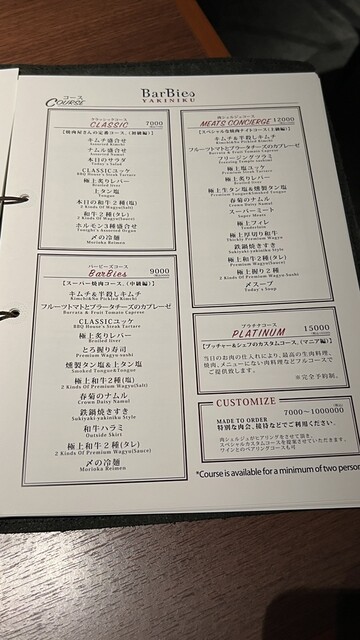 BarBies
YAKINIKU
コース
COURSE
クラシックコース
CLASSIC 7000
【焼肉屋さんの定番コース。(初級編)】
キムチ盛合せ
Assorted Kimchi
ナムル盛合せ
Assorted Namul
本日のサラダ
Today's Salad
CLASSICユッケ
BBQ House's Steak Tartare
極上炙りレバー
Broiled liver
上タン塩
Tongue
本日の和牛2種(塩)
2 Kinds Of Wagyu(Salt)
和牛2種(タレ)
2 Kinds Of Wagyu(Sauce)
ホルモン3種盛合せ
Tonight's Assorted Organ
〆の冷麺
Morioka Reimen
バービーズコース
BarBies 9000
【スーパー焼肉コース。(中級編)】
キムチ&半殺しキムチ
Kimchi&No Pickled Kimchi
フルーツトマトとブラータチーズのカプレーゼ
Burrata & Fruit Tomato Caprese
CLASSICユッケ
BBQ House's Steak Tartare
極上炙りレバー
Broiled liver
とろ握り寿司
Premium Wagyu sushi
燻製タン塩&上タン塩
Smoked Tongue&Tongue
極上和牛2種(塩)
2 Kinds Of Premium Wagyu(Salt)
春菊のナムル
Crown Daisy Namul
鉄鍋焼きすき
Sukiyaki yakiniku Style
和牛ハラミ
Outside Skirt
極上和牛2種(タレ)
2 Kinds Of Premium Wagyu(Sauce)
〆の冷麺
Morioka Reimen
肉コンシェルジュコース
MEATS CONCIERGE 12000
【スペシャルな焼肉ナイトコース(上級編)】
キムチ&半殺しキムチ
Kimchi&No Pickled Kimchi
フルーツトマトとブラータチーズのカプレーゼ
Burrata & Fruit Tomato Caprese
フリージングフラミ
極上塩ユッケ
極上炙りレバー
Broiled liver
極上生タン塩&燻製タン塩
春菊のナムル
Crown Daisy Namul
スーパーミート
Super Meats
極上フィレ
Tenderloin
極上厚切り和牛
Thickly Premium Wagyu
鉄鍋焼きすき
Sukiyaki yakiniku Style
極上和牛2種(タレ)
Premium Wagyu(Sauce)
極上握り2種
2 Kinds Of Premium Wagyu Sushi
〆スープ
Today's Soup
プラチナコース
PLATINUM 15000
【ブッチャー&シェフのカスタムコース。(マニア編)】
当日のお肉の仕入れにより、最高の生肉料理、
焼肉、メニューにない肉料理などフルコースで
ご提供致します。
※完全予約制。
CUSTOMIZE
7000〜1000000
MADE TO ORDER
特別な肉会、接待などでご利用ください。
肉シェルジュがヒアリングをさせて頂き、
スペシャルカスタムコースを提案させていただきます。
ワインとのペアリングコースも可
*Course is available for a minimum of two person